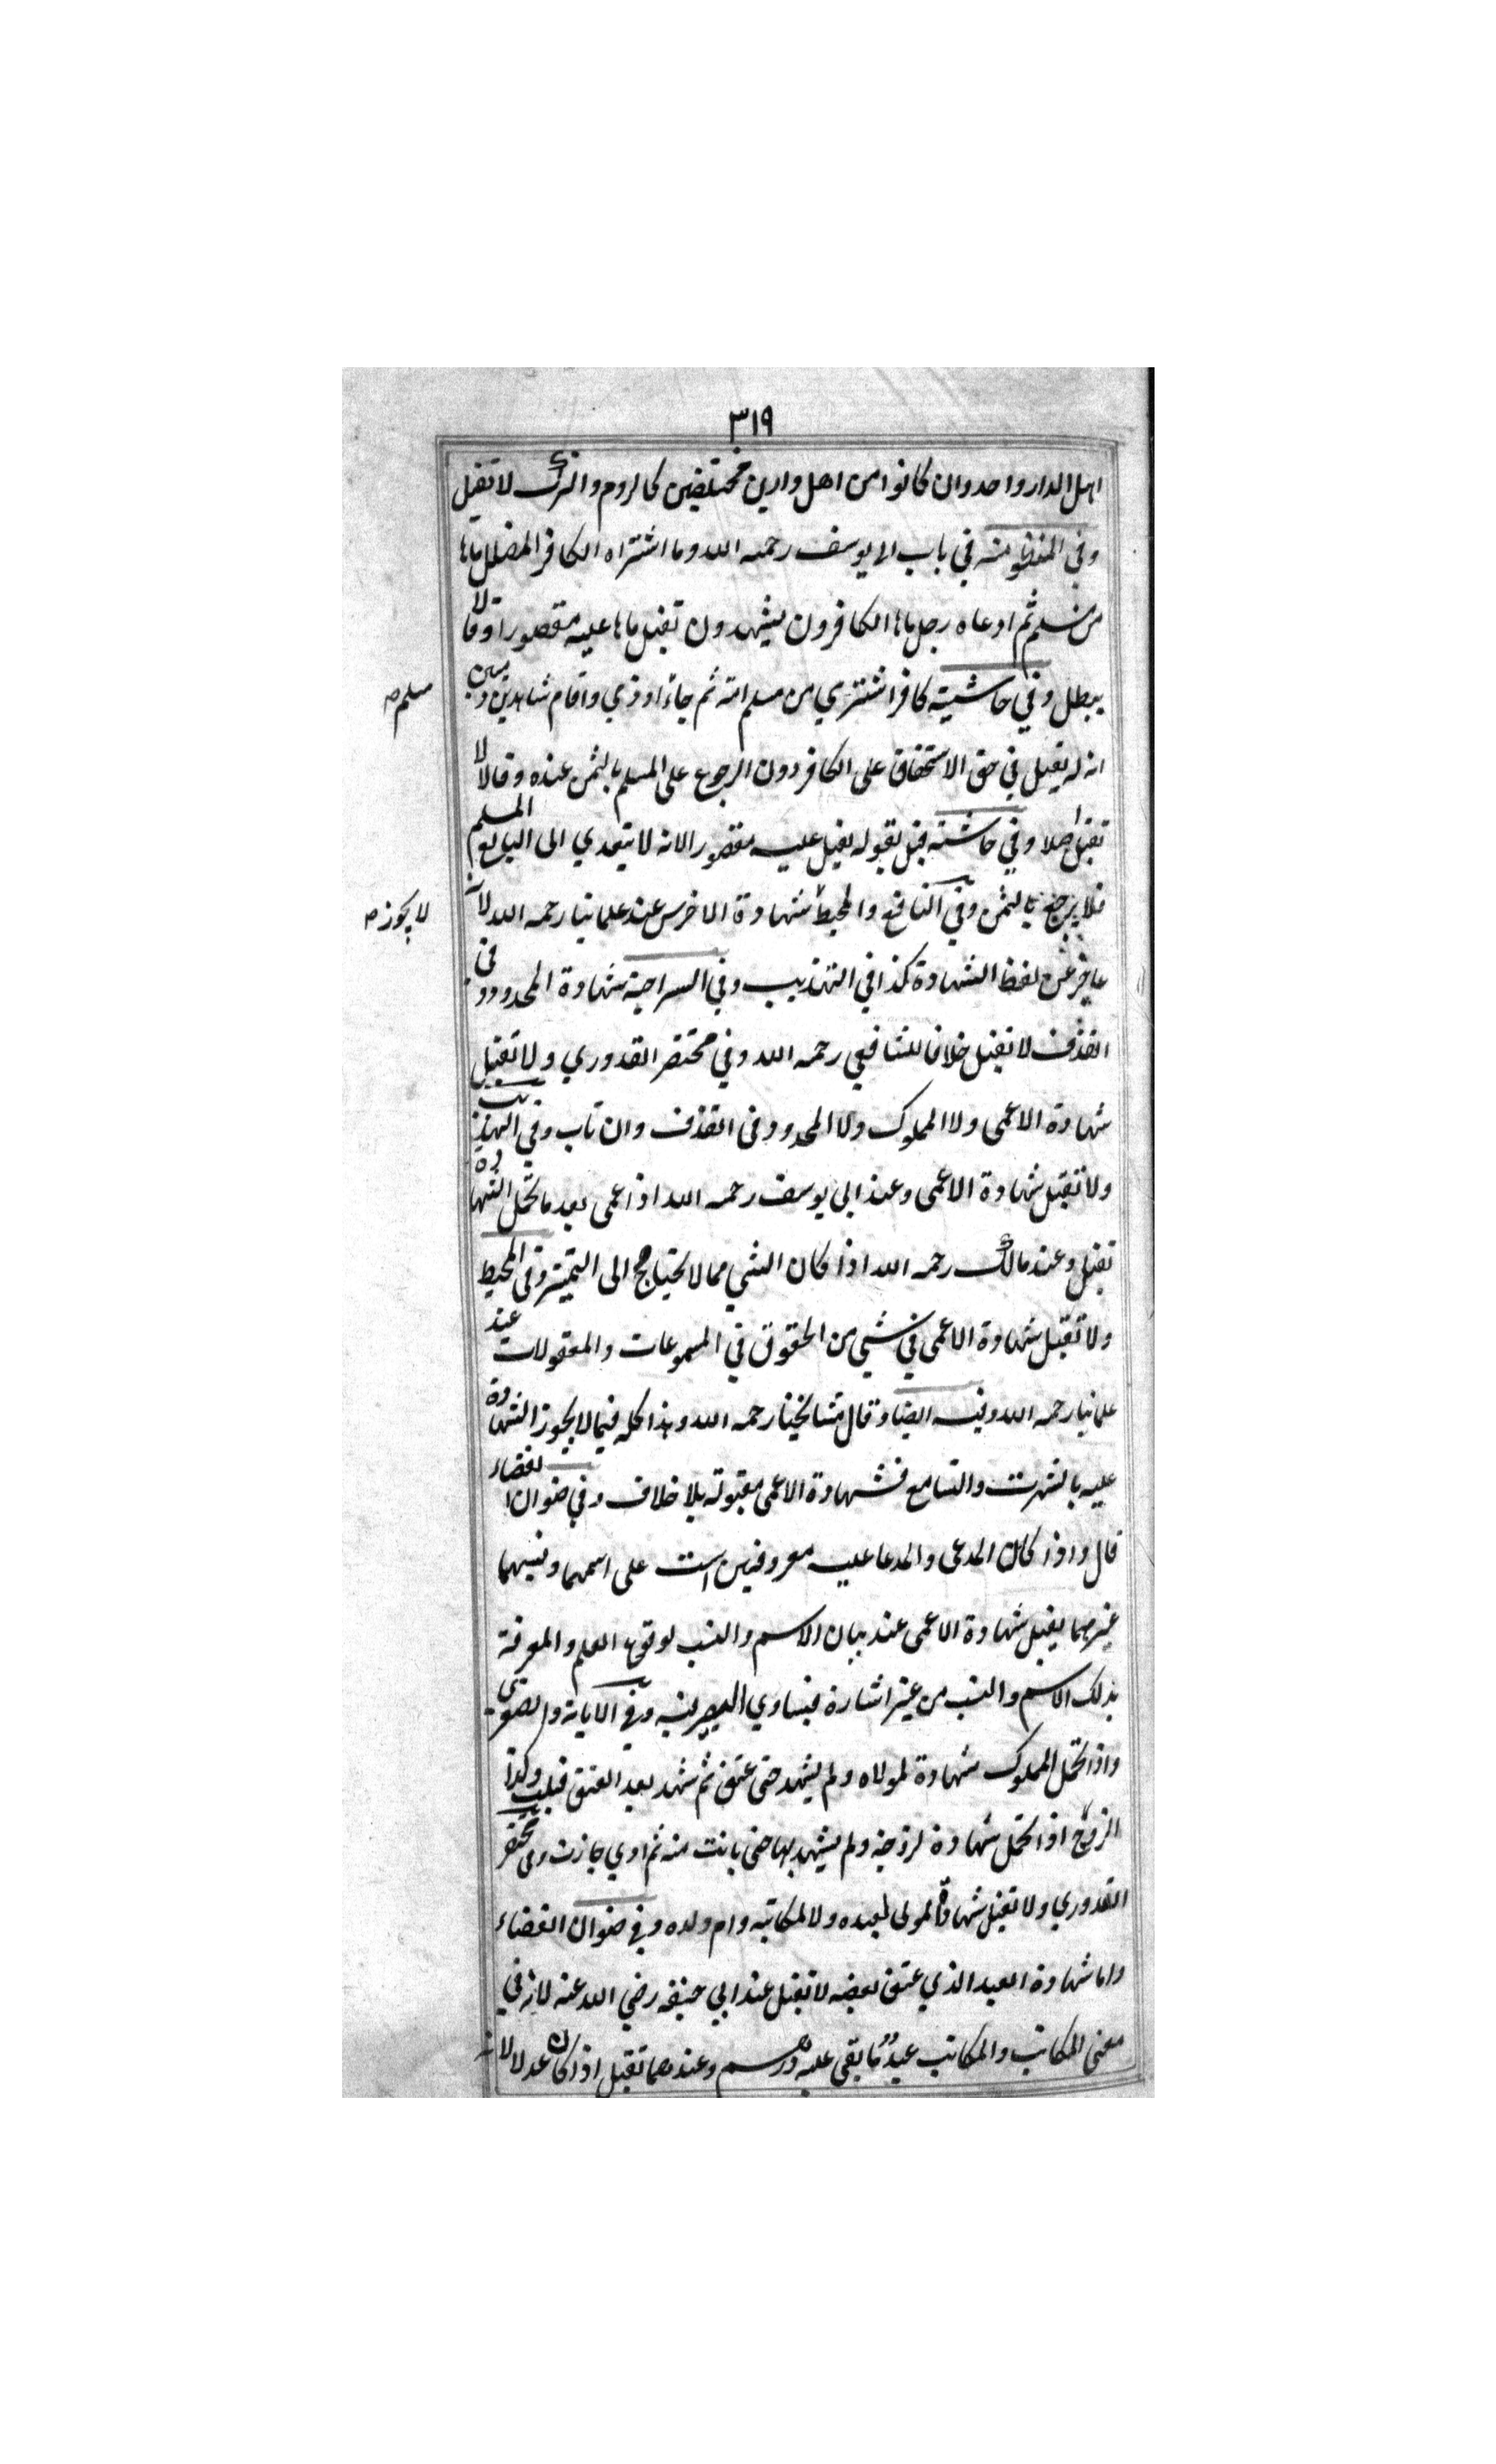 ٣١٩
اهل الدار واحد وان كانوا من اهل دارين مختلفين كالروم والترك لا تقبل
وفي المنظومة في باب ابي يوسف رحمه الله وما اشتراه الكافر
من مسلم ثم ادعاه رجل الكافرون يشهدون تقبل عليه مقصورا وقالا
يبطل وفي حاشيته كافر اشترى من مسلم امة ثم جاء اوذمي واقام شاهدين ذميين
مسلم صه
انه له يقبل في حق الاستحقاق على الكافر دون الرجوع على المسلم بالثمن عنده وقالا لا
تقبل اصلا وفي حاشيته قيل بقوله يقبل عليه مقصورا لانه لا يتعدي الى البايع المسلم
فلا يرجع بالثمن وفي النافع والمحيط شهادة الاخرس عند علمائنا رحمه الله لانه
لا يجوز صه
عاجز عن لفظ الشهادة كذا في التهذيب وفي السراجية شهادة المحدود في
القذف لا تقبل خلافا للشافعي رحمه الله وفي مختصر القدوري ولا تقبل
شهادة الاعمى ولا المملوك ولا المحدود في القذف وان تاب وفي التهذيب
ولا تقبل شهادة الاعمى وعند ابي يوسف رحمه الله اذا عمى بعد ما تحمل الشهادة
تقبل وعند مالك رحمه الله اذا كان الشي مما لا يحتاج الى التميز وفي المحيط
ولا تقبل شهادة الاعمى في شي من الحقوق في المسموعات والمعقولات عند
علمائنا رحمه الله وفيه ايضا وقال مشايخنا رحمه الله وهذا كله فيما لا يجوز الشهادة
عليه بالشهرت والتسامع فشهادة الاعمى مقبولة بلا خلاف وفي صنوان القضاء
قال واذا كان المدعى والمدعا عليه معروفين است على اسمهما ونسبهما
غيرهما يقبل شهادة الاعمى عند بيان الاسم والنسب لوقوع العلم والمعرفة
بذلك الاسم والنسب من غير اشارة فيساوي البصير فيه وفي
واذا تحمل المملوك شهادة لمولاه ولم يشهد حتى عتق ثم شهد بعد العتق قبلت وكذا
الزوج اذا تحمل شهادة لزوجته ولم يشهد بها حتى بانت منه ثم ادي جازت وفي مختصر
القدوري ولا تقبل شهادة المولى لعبده ولا لمكاتبه وام ولده وفي صنوان القضاء
واما شهادة العبد الذي عتق بعضه لا تقبل عند ابي حنيفه رضي الله عنه لانه في
معنى المكاتب والمكاتب عبد ما بقى عليه درهم وعندهما تقبل اذا كان عدلا لانه